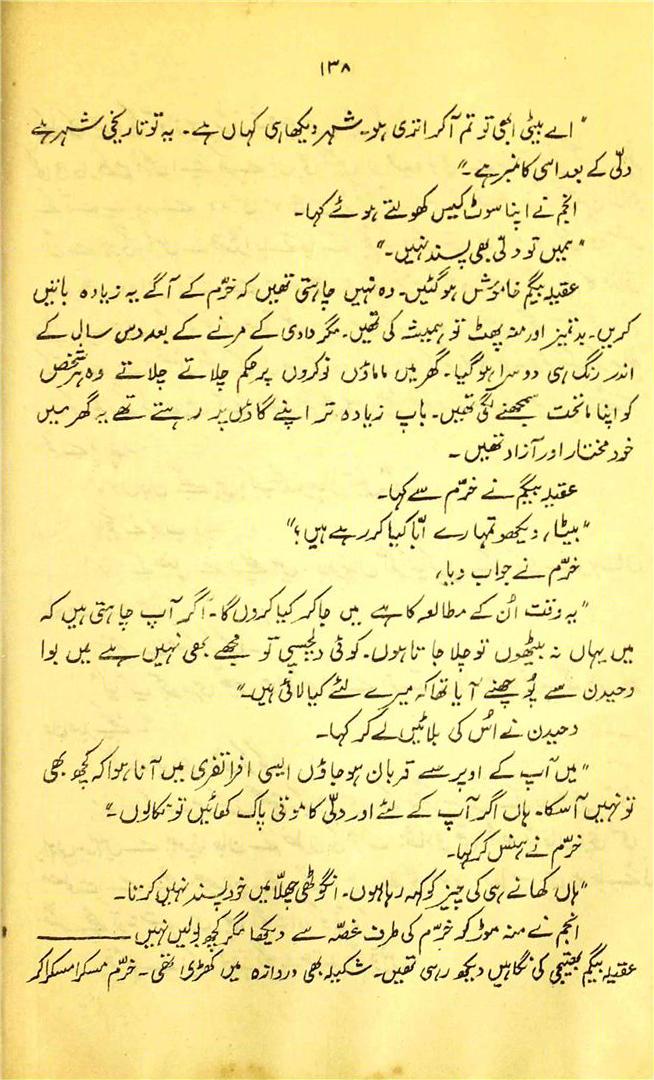 ۱۳۸
"اے بیٹی ابھی تو تم آکر اتری ہو۔ شہر دیکھا ہی کہاں ہے۔ یہ تو تاریخی شہر ہے
دلّی کے بعد اسی کا نمبر ہے۔"
انجم نے اپنا سوٹ کیس کھولتے ہوئے کہا۔
"ہمیں تو دلّی بھی پسند نہیں۔"
عقیلہ بیگم خاموش ہو گئیں۔ وہ نہیں چاہتی تھیں کہ خرّم کے آگے یہ زیادہ باتیں
کریں۔ بدتمیز اور منہ پھٹ تو ہمیشہ کی تھیں۔ مگر دادی کے مرنے کے بعد دس سال کے
اندر رنگ ہی دوسرا ہو گیا۔ گھر میں ماماؤں نوکروں پر حکم چلاتے چلاتے وہ ہر شخص
کو اپنا ماتحت سمجھنے لگی تھیں۔ باپ زیادہ تر اپنے گاؤں پر رہتے تھے یہ گھر میں
خود مختار اور آزاد تھیں۔
عقیلہ بیگم نے خرّم سے کہا۔
"بیٹا، دیکھو تمہارے ابّا کیا کر رہے ہیں؟"
خرّم نے جواب دیا،
"یہ وقت اُن کے مطالعہ کا ہے میں جا کر کیا کروں گا۔ اگر آپ چاہتی ہیں کہ
میں یہاں نہ بیٹھوں تو چلا جاتا ہوں۔ کوئی دلچسپی تو مجھے بھی نہیں ہے میں بوا
وحیدن سے پُوچھنے آیا تھا کہ میرے لئے کیا لائی ہیں۔"
وحیدن نے اُس کی بلائیں لے کر کہا۔
"میں آپ کے اوپر سے قربان ہو جاؤں ایسی افراتفری میں آنا ہوا کہ کچھ بھی
تو نہیں آسکا۔ ہاں اگر آپ کے لئے اور دلّی کا موتی پاک کھائیں تو نکالوں۔"
خرّم نے ہنس کر کہا۔
"ہاں کھانے ہی کی چیز کو کہہ رہا ہوں۔ انگوٹھی چھلّا میں خود پسند نہیں کرتا۔
انجم نے منہ موڑ کر خرّم کی طرف غصّہ سے دیکھا مگر کچھ بولیں نہیں ـــــــــ
عقیلہ بیگم بھتیجی کی نگاہیں دیکھ رہی تھیں۔ شکیلہ بھی دروازہ میں کھڑی تھی۔ خرّم مسکرا مسکرا کر